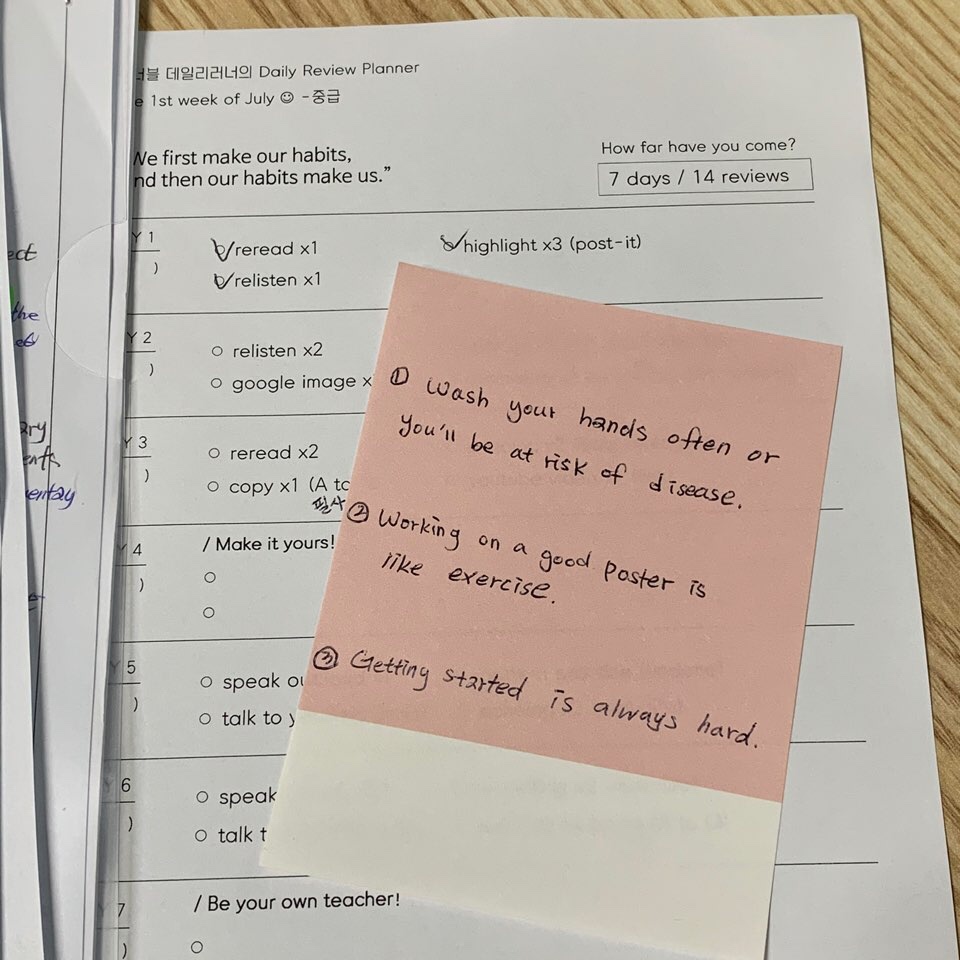 데일리러너의 Daily Review Planner
1st week of July ☺ -중급
We first make our habits,
and then our habits make us.”
How far have you come?
7 days / 14 reviews
Y 1
)
reread x1
highlight x3 (post-it)
relisten x1
Y 2
)
relisten x2
google image x
Y 3
)
reread x2
copy x1 (A to
필사
4
)
/ Make it yours!
5
)
speak
talk to
6
)
speak
talk t
7
)
/ Be your own teacher!
① Wash your hands often or
you'll be at risk of disease.
② Working on a good poster is
like exercise.
③ Getting started is always hard.
ect
the
ed
ary
ents
entay